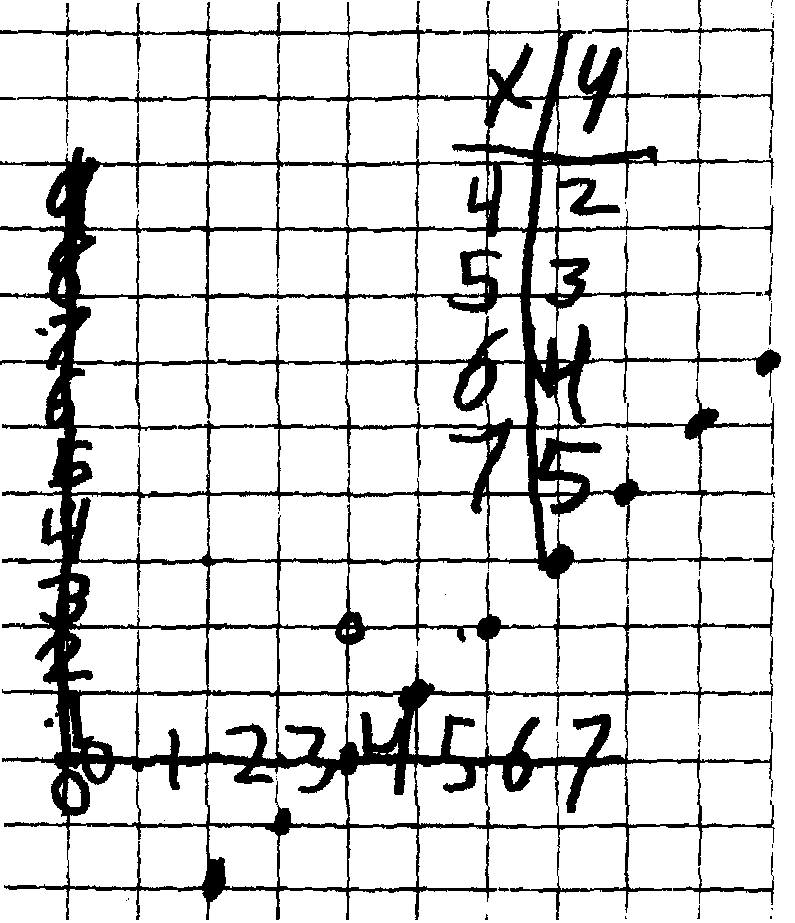 x y
4 2
5 3
6 4
7 5
9
8
7
6
5
4
3
2
1
0 1 2 3 4 5 6 7
0